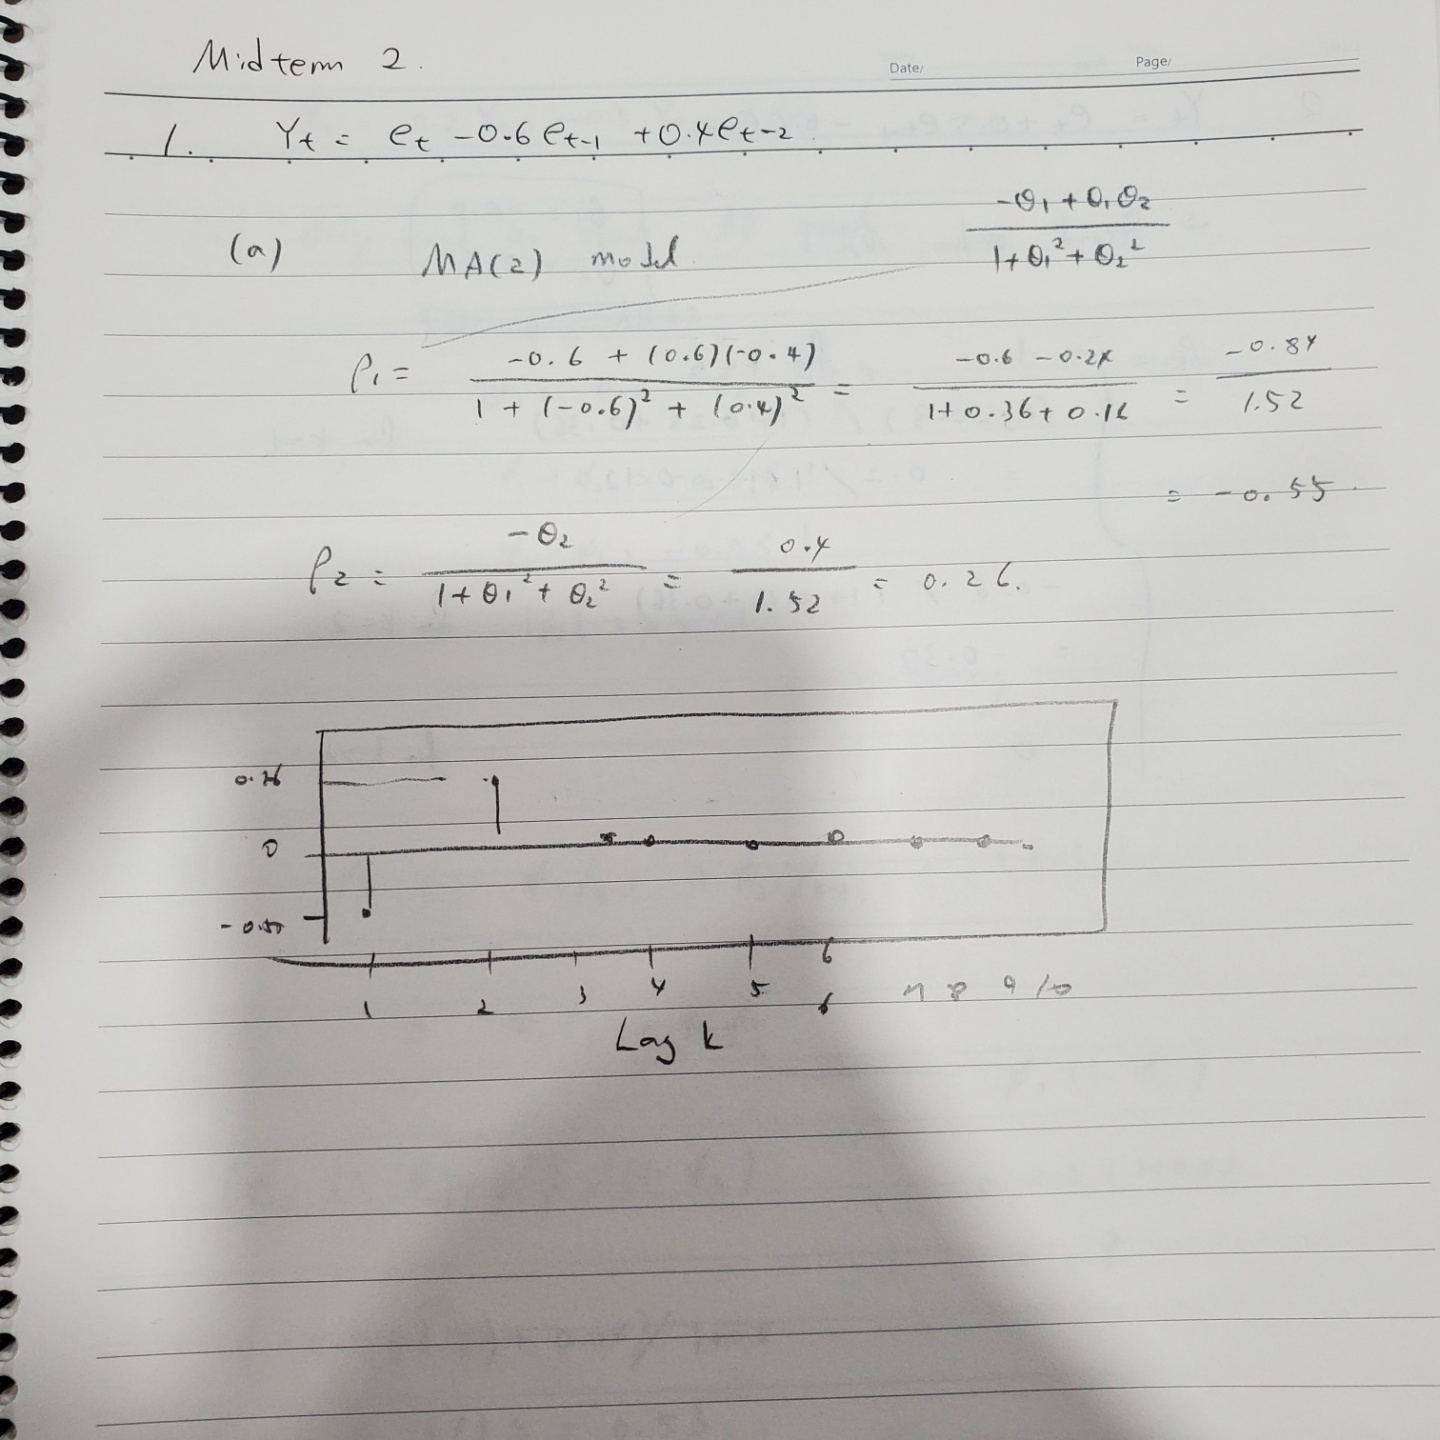 Midterm 2.
Date/ Page/
1. Yt = et -0.6 et-1 +0.4et-2.
-θ1 + θ1θ2
1+θ1² + θ2²
(a) MA(2) model
ρ1 = -0.6 + (0.6)(-0.4) / 1 + (-0.6)² + (0.4)² = -0.6 -0.24 / 1+0.36+0.16 = -0.84 / 1.52
= -0.55.
ρ2 = -θ2 / 1+θ1²+θ2² = 0.4 / 1.52 = 0.26.
0.26
0
6
1 2 3 4 5 6 7 8 9 10
Lag k